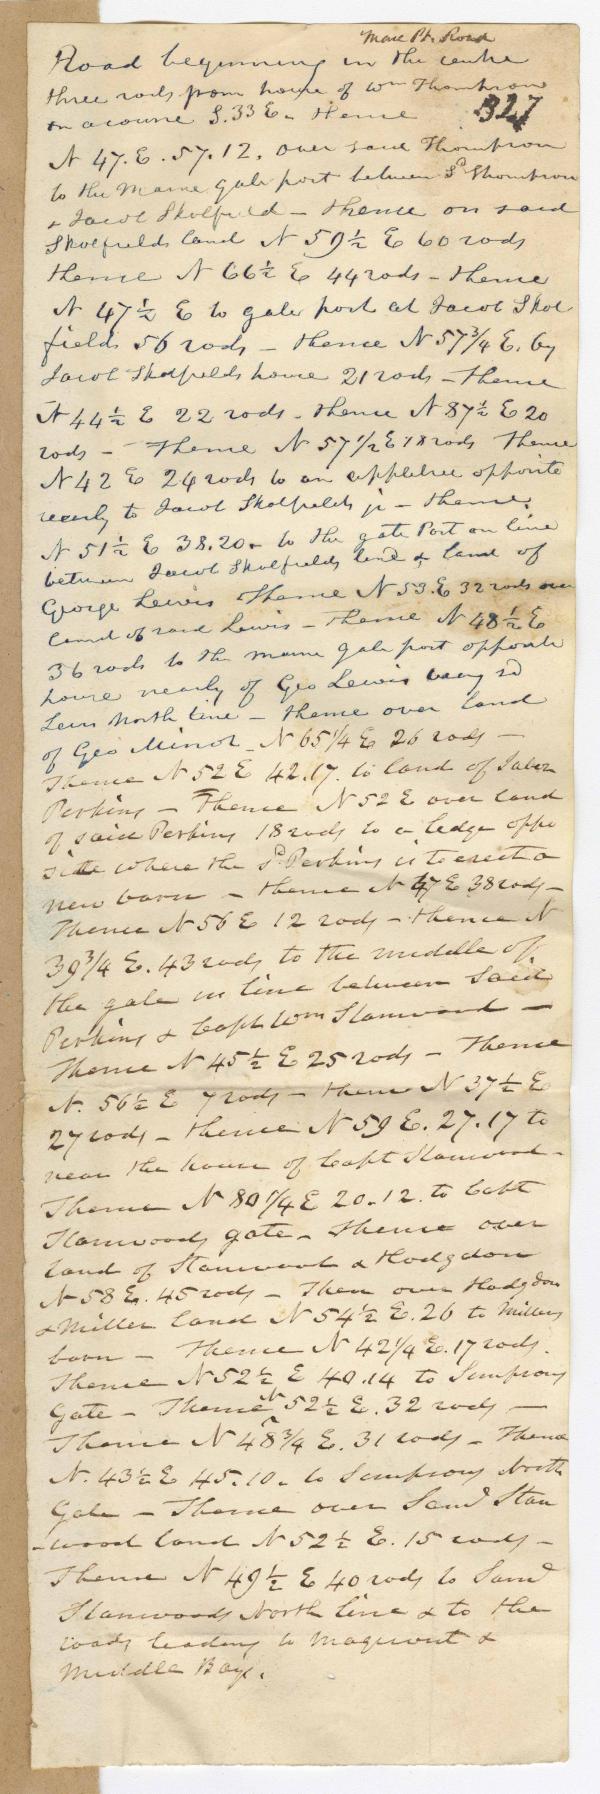 Mare Pt. Road
Road beginning in the centre
three rods from house of Wm Thompson
on a course S. 33 E. Thence 327
N 47. E. 57.12. over said Thompson
to the Maine gate port between Sd Thompson
& Jacob Skolfield - thence on said
Skolfields land N 59½ E 60 rods
thence N 66½ E 44 rods - thence
N 47½ E to gate port at Jacob Skol
fields 56 rods - thence N 57¾ E. by
Jacob Skolfields house 21 rods - thence
N 44½ E 22 rods - thence N 87½ E 20
rods - Thence N 57½ E 18 rods Thence
N 42 E 24 rods to an appletree opposite
nearly to Jacob Skolfields jr - thence
N 51½ E 38.20. to the gate Port on line
between Jacob Skolfields land & land of
George Lewis Thence N 53. E 32 rods over
land of said Lewis - thence N 48½ E
36 rods to the maine gate port opposite
house nearly of Geo Lewis being sd
Lewis North line - thence over land
of Geo Minot - N 65¼ E 26 rods -
Thence N 52 E 42.17. to land of
Perkins - Thence N 52 E over land
of said Perkins 18 rods to a ledge oppo
site where the Sd Perkins is to erect a
new barn - thence N 47 E 38 rods -
Thence N 56 E 12 rods - thence N
39¾ E. 43 rods to the middle of
the gate in line between said
Perkins & Capt Wm Stanwood -
Thence N 45½ E 25 rods - Thence
N. 56½ E 7 rods - thence N 37½ E
27 rods - thence N 59 E. 27.17 to
near the house of Capt Stanwood -
Thence N 80¼ E 20.12. to Capt
Stanwoods gate - Thence over
land of Stanwood & Hodgdon
N 58 E. 45 rods - Then over Hodgdon
& Miller land N 54½ E. 26 to Millers
barn - Thence N 42¼ E. 17 rods.
Thence N 52½ E 40.14 to Simpsons
Gate - Thence N 52½ E. 32 rods -
Thence N 48¾ E. 31 rods - Thence
N. 43½ E 45.10. to Simpsons North
Gate - Thence over Saml Stan
-wood land N 52½ E. 15 rods -
Thence N 49½ E 40 rods to Saml
Stanwoods North line & to the
roads leading to Maquoit &
Middle Bay.